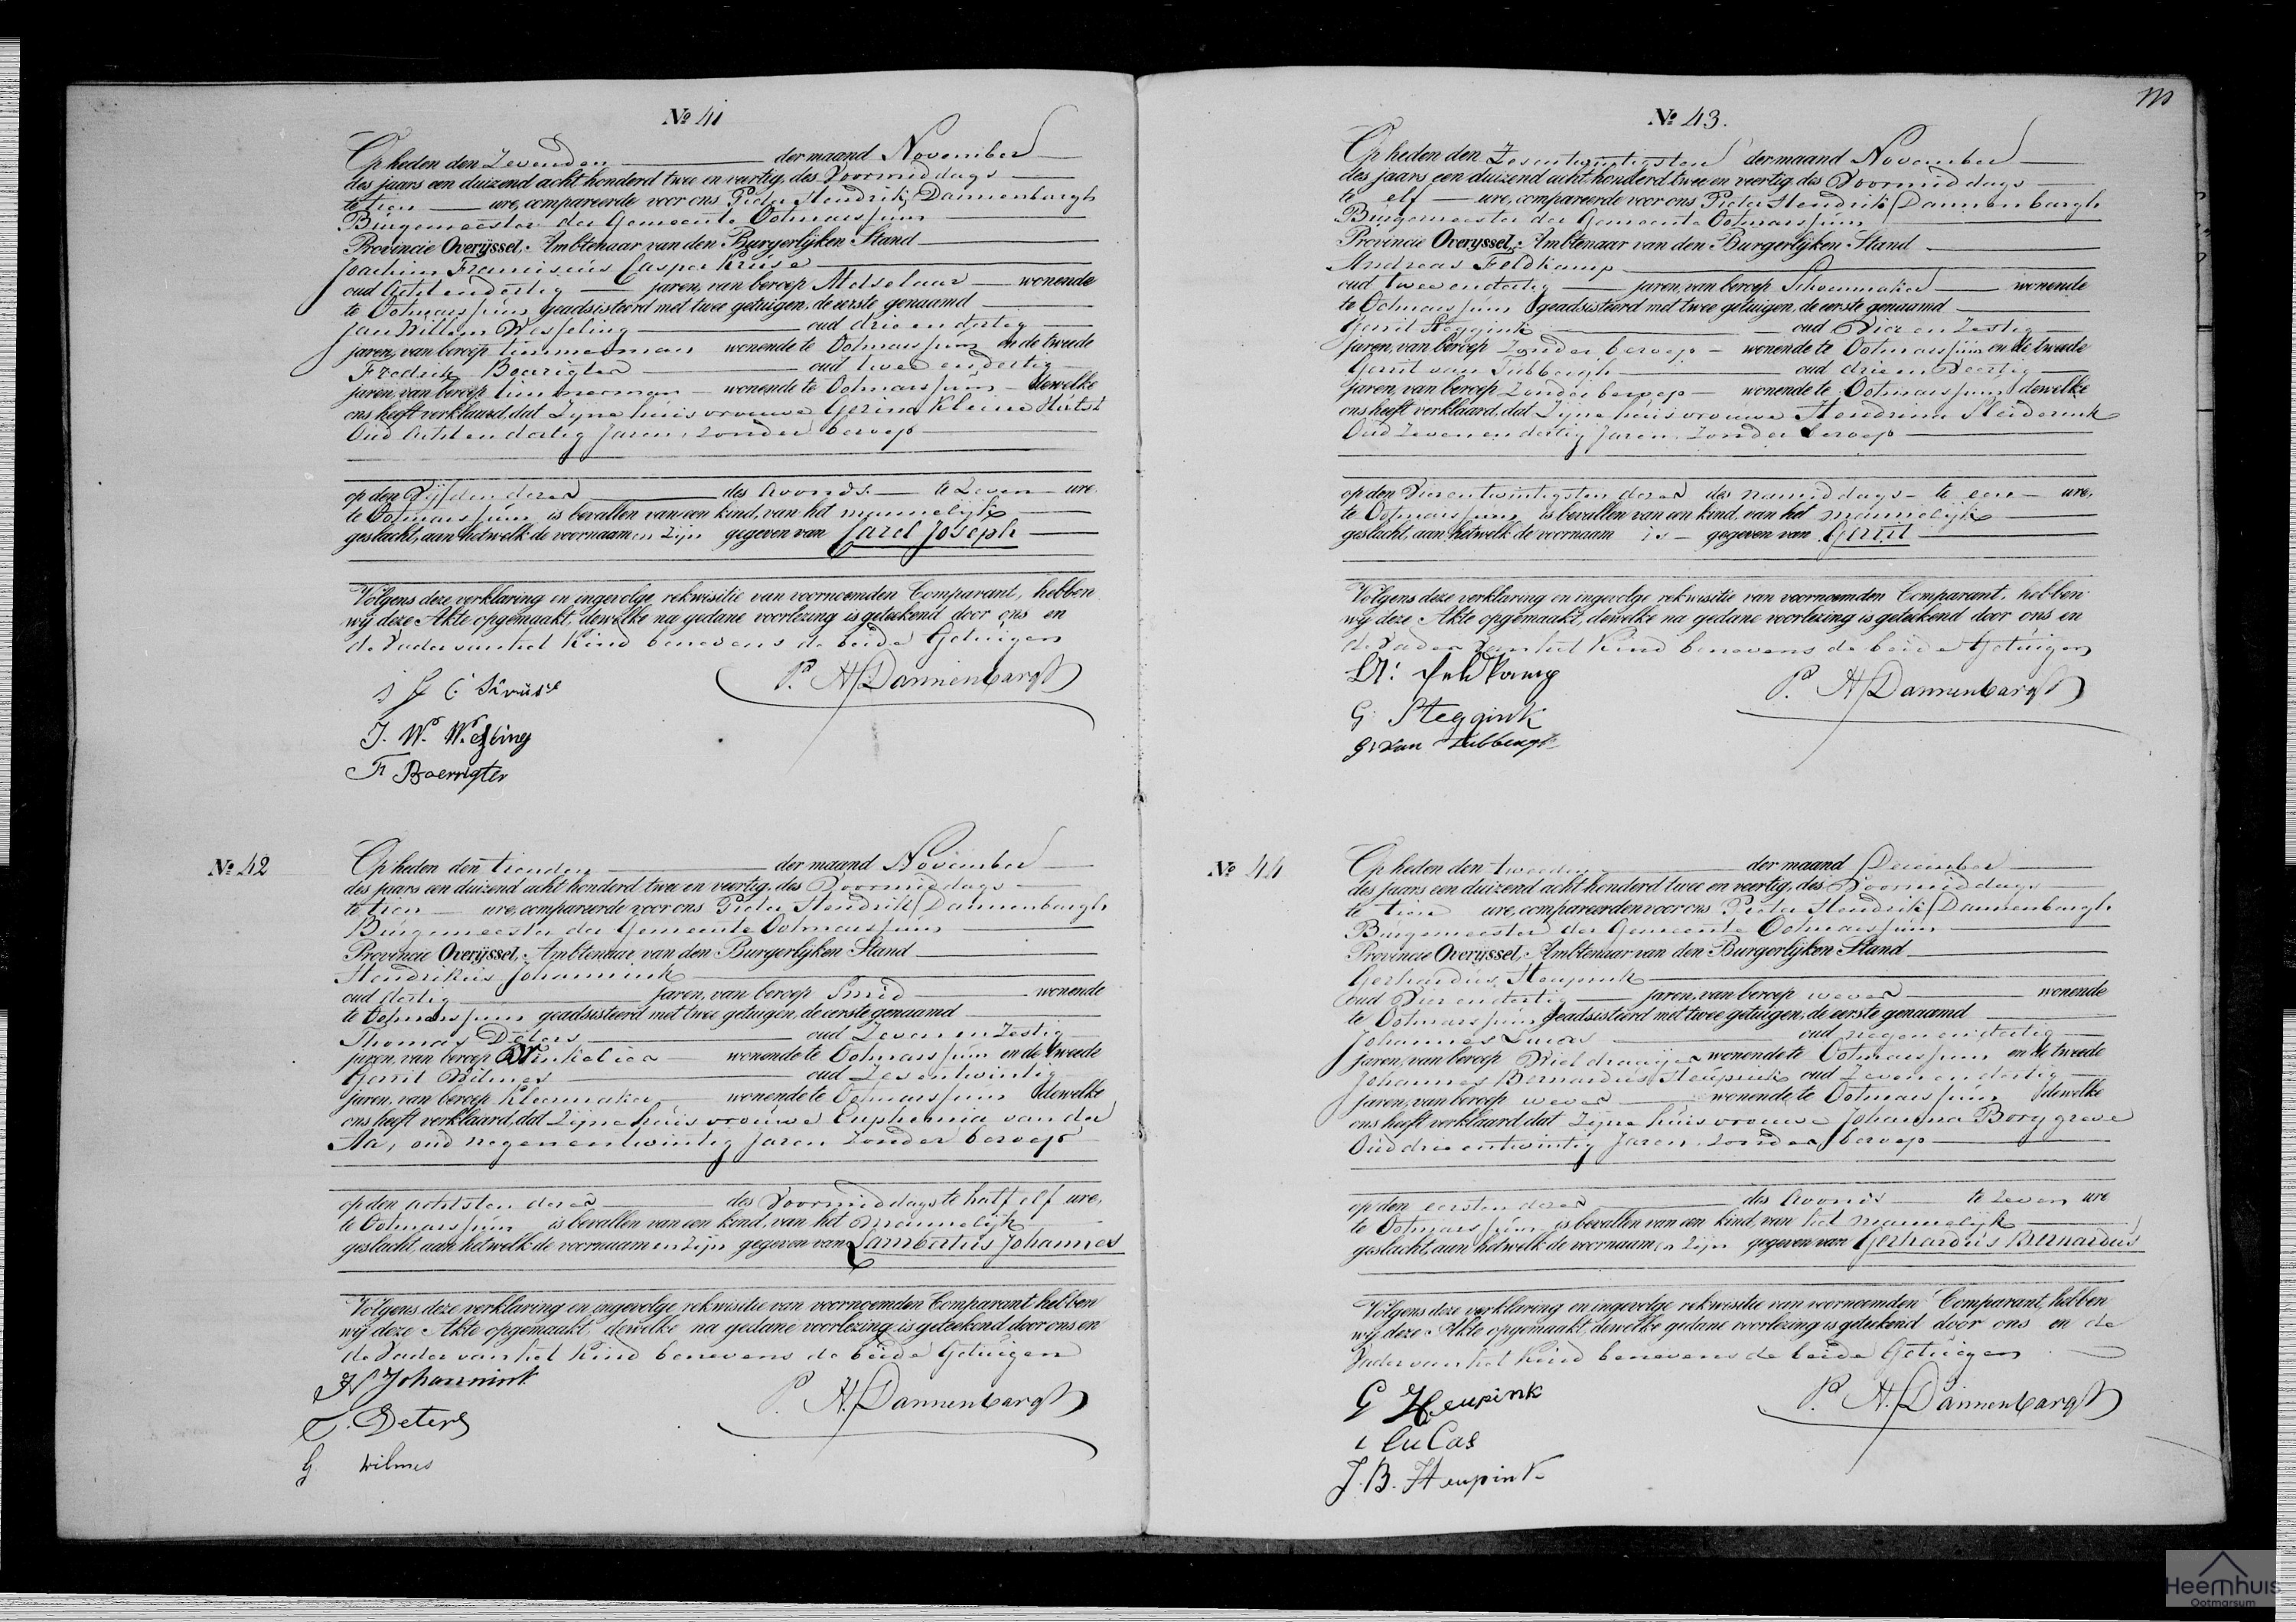 No 41
Op heden den Zevenden der maand November
des jaars een duizend acht honderd twee en veertig, des Voormiddags
te tien ure, compareerde voor ons Pieter Hendrik Dannenbargh
Burgemeester der Gemeente Ootmarssum
Provincie Overijssel, Ambtenaar van den Burgerlijken Stand
Joachim Franciscus Casper Kruse
oud Acht en dertig jaren, van beroep Metselaar wonende
te Ootmarssum geadsisteerd met twee getuigen, de eerste genaamd
Jan Willem Wesseling oud drie en dertig
jaren, van beroep timmerman wonende te Ootmarssum en de tweede
Fredrik Boerigter oud twee en dertig
jaren, van beroep timmerman wonende te Ootmarssum dewelke
ons heeft verklaard, dat Zijne huisvrouwe Gezina Kleine
Oud Acht en dertig Jaren, zonder beroep
op den Vijfden dezer des Avonds te Zeven ure,
te Ootmarssum is bevallen van een kind, van het mannelijk
geslacht, aan hetwelk de voornaamen zijn gegeven van Carel Joseph
Volgens deze verklaring en ingevolge rekwisitie van voornoemden Comparant, hebben
wij deze Akte opgemaakt, dewelke na gedane voorlezing is geteekend door ons en
de Vader van het Kind benevens de beide Getuigen
J F C Kruse
P. H. Dannenbargh
J. W. Wesling
F Boerrigter
No 42
Op heden den tienden der maand November
des jaars een duizend acht honderd twee en veertig, des Voormiddags
te tien ure, compareerde voor ons Pieter Hendrik Dannenbargh
Burgemeester der Gemeente Ootmarssum
Provincie Overijssel, Ambtenaar van den Burgerlijken Stand
Hendrikus Johannink
oud dertig jaren, van beroep Smid wonende
te Ootmarssum geadsisteerd met twee getuigen, de eerste genaamd
Thomas Deters oud Zeven en Zestig
jaren, van beroep Winkelier wonende te Ootmarssum en de tweede
Gerrit Wilmes oud Zes en twintig
jaren, van beroep Kleermaker wonende te Ootmarssum dewelke
ons heeft verklaard, dat Zijne huisvrouwe Euphemia van der
Aa, oud negen en twintig Jaren Zonder beroep
op den achtsten dezer des Voormiddags te half elf ure,
te Ootmarssum is bevallen van een kind, van het mannelijk
geslacht, aan hetwelk de voornaamen zijn gegeven van Lambertus Johannes
Volgens deze verklaring en ingevolge rekwisitie van voornoemden Comparant hebben
wij deze Akte opgemaakt, dewelke na gedane voorlezing is geteekend door ons en
de Vader van het Kind benevens de beide Getuigen
H Johannink
P. H. Dannenbargh
T. Deters
G. Wilmes
No 43.
Op heden den Zesentwintigsten der maand November
des jaars een duizend acht honderd twee en veertig, des Voormiddags
te elf ure, compareerde voor ons Pieter Hendrik Dannenbargh
Burgemeester der Gemeente Ootmarssum
Provincie Overyssel, Ambtenaar van den Burgerlijken Stand
Andreas Feldkamp
oud twee en dertig jaren, van beroep Schoenmaker wonende
te Ootmarssum geadsisteerd met twee getuigen, de eerste genaamd
Gerrit Steggink oud Vier en Zestig
jaren, van beroep Zonder beroep wonende te Ootmarssum en de tweede
Gerrit van Lubbergh oud drie en Veertig
jaren, van beroep Zonder beroep wonende te Ootmarssum dewelke
ons heeft verklaard, dat Zijne huisvrouwe Hendrina
Oud Zeven en dertig Jaren, Zonder beroep
op den Vierentwintigsten dezer des namiddags te een ure,
te Ootmarssum is bevallen van een kind, van het mannelijk
geslacht, aan hetwelk de voornaam is gegeven van Gerrit
Volgens deze verklaring en ingevolge rekwisitie van voornoemden Comparant, hebben
wij deze Akte opgemaakt, dewelke na gedane voorlezing is geteekend door ons en
de Vader van het Kind benevens de beide Getuigen
A: Feldkamp
P. H. Dannenbargh
G: Steggink
G: van Lubbergh
No 44
Op heden den tweeden der maand December
des jaars een duizend acht honderd twee en veertig, des Voormiddags
te tien ure, compareerden voor ons Pieter Hendrik Dannenbargh
Burgemeester der Gemeente Ootmarssum
Provincie Overijssel, Ambtenaar van den Burgerlijken Stand
Gerhardus Heupink
oud Vier en dertig jaren, van beroep wever wonende
te Ootmarssum geadsisteerd met twee getuigen, de eerste genaamd
Johannes Lucas oud negen en dertig
jaren, van beroep Wieldraaijer wonende te Ootmarssum en de tweede
Johannes Bernardus Heupink oud Zeven en dertig
jaren, van beroep wever wonende te Ootmarssum dewelke
ons heeft verklaard dat Zijne huisvrouwe Johanna Borggreve
Oud drie entwintig Jaren, zonder beroep
op den eersten dezer des Avonds te Zeven ure
te Ootmarssum is bevallen van een kind, van het mannelijk
geslacht, aan hetwelk de voornaamen zijn gegeven van Gerhardus Bernardus
Volgens deze verklaring en ingevolge rekwisitie van voornoemden Comparant, hebben
wij deze Akte opgemaakt, dewelke gedane voorlezing is geteekend door ons en de
Vader van het Kind benevens de beide Getuigen
G Heupink
P. H. Dannenbargh
LuCas
J. B. Heupink
Heemhuis
Ootmarsum